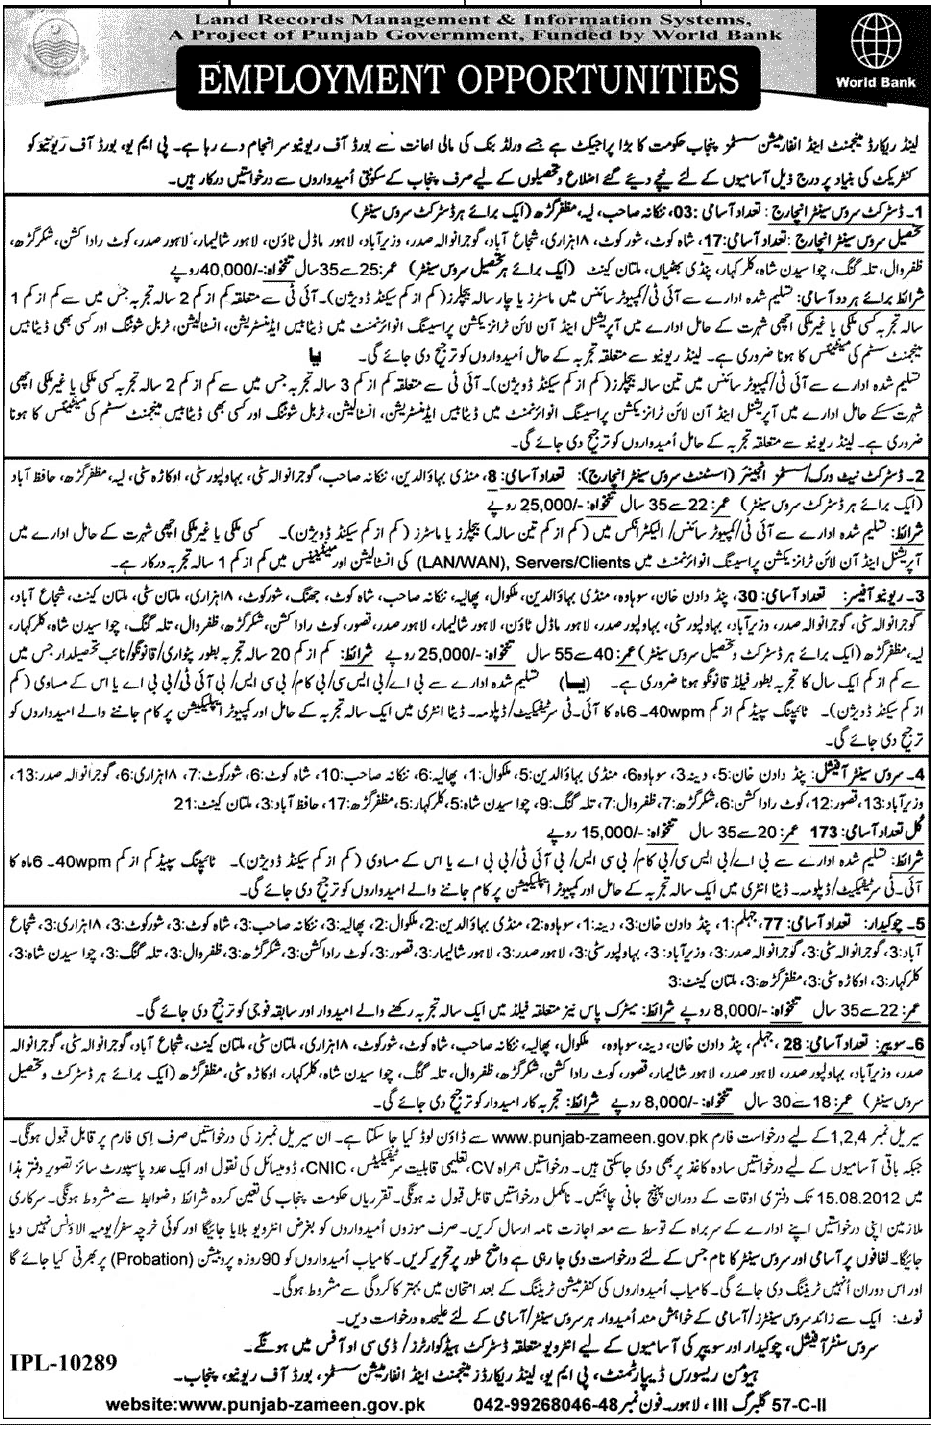 Land Records Management & Information Systems,
A Project of Punjab Government, Funded by World Bank
EMPLOYMENT OPPORTUNITIES
World Bank
لینڈ ریکارڈ مینجمنٹ اینڈ انفارمیشن سسٹمز پنجاب حکومت کا بڑا پراجیکٹ ہے جسے ورلڈ بنک کی مالی اعانت سے بورڈ آف ریونیو سرانجام دے رہا ہے۔ پی ایم یو، بورڈ آف ریونیو کو
کنٹریکٹ کی بنیاد پر درج ذیل آسامیوں کے لئے نیچے دیئے گئے اضلاع و تحصیلوں کے لیے صرف پنجاب کے سکونتی اُمیدواروں سے درخواستیں درکار ہیں۔
1۔ ڈسٹرکٹ سروس سینٹر انچارج: تعداد آسامی: 03، ننکانہ صاحب، لیہ، مظفرگڑھ (ایک برائے ہر ڈسٹرکٹ سروس سینٹر)
تحصیل سروس سینٹر انچارج: تعداد آسامی: 17، شاہ کوٹ، شورکوٹ، ۱۸ہزاری، شجاع آباد، گوجرانوالہ صدر، وزیرآباد، لاہور ماڈل ٹاؤن، لاہور شالیمار، لاہور صدر، کوٹ رادا کشن، شکرگڑھ،
ظفروال، تلہ گنگ، چوا سیدن شاہ، کلرکہار، پنڈی بھٹیاں، ملتان کینٹ (ایک برائے ہر تحصیل سروس سینٹر) عمر: 25سے35 سال تنخواہ: -/40,000روپے
شرائط برائے ہر دو آسامی: تسلیم شدہ ادارے سے آئی ٹی/کمپیوٹر سائنس میں ماسٹرز یا چار سالہ بیچلرز (کم از کم سیکنڈ ڈویژن)۔ آئی ٹی سے متعلقہ کم از کم 2 سالہ تجربہ جس میں سے کم از کم 1
سالہ تجربہ کسی ملکی یا غیر ملکی اچھی شہرت کے حامل ادارے میں آپریشنل اینڈ آن لائن ٹرانزیکشن پراسیسنگ انوائرنمنٹ میں ڈیٹابیس ایڈمنسٹریشن، انسٹالیشن، ٹربل شوٹنگ اور کسی بھی ڈیٹابیس
مینجمنٹ سسٹم کی مینٹینس کا ہونا ضروری ہے۔ لینڈ ریونیو سے متعلقہ تجربہ کے حامل اُمیدواروں کو ترجیح دی جائے گی۔ یا
تسلیم شدہ ادارے سے آئی ٹی/کمپیوٹر سائنس میں تین سالہ بیچلرز (کم از کم سیکنڈ ڈویژن)۔ آئی ٹی سے متعلقہ کم از کم 3 سالہ تجربہ جس میں سے کم از کم 2 سالہ تجربہ کسی ملکی یا غیر ملکی اچھی
شہرت کے حامل ادارے میں آپریشنل اینڈ آن لائن ٹرانزیکشن پراسیسنگ انوائرنمنٹ میں ڈیٹابیس ایڈمنسٹریشن، انسٹالیشن، ٹربل شوٹنگ اور کسی بھی ڈیٹابیس مینجمنٹ سسٹم کی مینٹینس کا ہونا
ضروری ہے۔ لینڈ ریونیو سے متعلقہ تجربہ کے حامل اُمیدواروں کو ترجیح دی جائے گی۔
2۔ ڈسٹرکٹ نیٹ ورک/سسٹمز انجینئر (اسسٹنٹ سروس سینٹر انچارج): تعداد آسامی: 8، منڈی بہاؤالدین، ننکانہ صاحب، گوجرانوالہ سٹی، بہاولپور سٹی، اوکاڑہ سٹی، لیہ، مظفرگڑھ، حافظ آباد
(ایک برائے ہر ڈسٹرکٹ سروس سینٹر) عمر: 22سے35 سال تنخواہ: -/25,000 روپے
شرائط: تسلیم شدہ ادارے سے آئی ٹی/کمپیوٹر سائنس/الیکٹرانکس میں (کم از کم تین سالہ) بیچلرز یا ماسٹرز (کم از کم سیکنڈ ڈویژن)۔ کسی ملکی یا غیر ملکی اچھی شہرت کے حامل ادارے میں
آپریشنل اینڈ آن لائن ٹرانزیکشن پراسیسنگ انوائرنمنٹ میں LAN/WAN), Servers/Clients) کی انسٹالیشن اور مینٹینس میں کم از کم 1 سالہ تجربہ درکار ہے۔
3۔ ریونیو آفیسر: تعداد آسامی: 30، پنڈ دادن خان، سوہاوہ، منڈی بہاؤالدین، ملکوال، پھالیہ، ننکانہ صاحب، شاہ کوٹ، جھنگ، شورکوٹ، ۱۸ہزاری، ملتان سٹی، ملتان کینٹ، شجاع آباد،
گوجرانوالہ سٹی، گوجرانوالہ صدر، وزیرآباد، بہاولپور سٹی، بہاولپور صدر، لاہور ماڈل ٹاؤن، لاہور شالیمار، لاہور صدر، قصور، کوٹ رادا کشن، شکرگڑھ، ظفروال، تلہ گنگ، چوا سیدن شاہ، کلرکہار،
لیہ، مظفرگڑھ (ایک برائے ہر ڈسٹرکٹ و تحصیل سروس سینٹر) عمر: 40سے55 سال تنخواہ: -/25,000 روپے شرائط: کم از کم 20 سالہ تجربہ بطور پٹواری/قانونگو/نائب تحصیلدار جس میں
سے کم از کم ایک سال کا تجربہ بطور فیلڈ قانونگو ہونا ضروری ہے۔ (یا) تسلیم شدہ ادارے سے بی اے/بی ایس سی/بی کام/بی سی ایس/بی آئی ٹی/بی بی اے یا اس کے مساوی (کم
از کم سیکنڈ ڈویژن)۔ ٹائپنگ سپیڈ کم از کم 40wpm۔ 6ماہ کا آئی۔ٹی سرٹیفکیٹ/ڈپلومہ۔ ڈیٹا انٹری میں ایک سالہ تجربہ کے حامل اور کمپیوٹر ایپلیکیشن پر کام جاننے والے امیدواروں کو
ترجیح دی جائے گی۔
4۔ سروس سینٹر آفیشل: پنڈ دادن خان:5، دینہ:3، سوہاوہ:6، منڈی بہاؤالدین:5، ملکوال:1، پھالیہ:6، ننکانہ صاحب:10، شاہ کوٹ:6، شورکوٹ:7، ۱۸ہزاری:6، گوجرانوالہ صدر:13،
وزیرآباد:13، قصور:12، کوٹ رادا کشن:6، شکرگڑھ:7، ظفروال:7، تلہ گنگ:9، چوا سیدن شاہ:5، کلرکہار:5، مظفرگڑھ:17، حافظ آباد:3، ملتان کینٹ:21
کل تعداد آسامی: 173 عمر: 20سے35 سال تنخواہ: -/15,000 روپے
شرائط: تسلیم شدہ ادارے سے بی اے/بی ایس سی/بی کام/بی سی ایس/بی آئی ٹی/بی بی اے یا اس کے مساوی (کم از کم سیکنڈ ڈویژن)۔ ٹائپنگ سپیڈ کم از کم 40wpm۔ 6ماہ کا
آئی۔ٹی سرٹیفکیٹ/ڈپلومہ۔ ڈیٹا انٹری میں ایک سالہ تجربہ کے حامل اور کمپیوٹر ایپلیکیشن پر کام جاننے والے امیدواروں کو ترجیح دی جائے گی۔
5۔ چوکیدار: تعداد آسامی: 77، جہلم:1، پنڈ دادن خان:3، دینہ:1، سوہاوہ:2، منڈی بہاؤالدین:2، ملکوال:2، پھالیہ:3، ننکانہ صاحب:3، شاہ کوٹ:3، شورکوٹ:3، ۱۸ہزاری:3، شجاع
آباد:3، گوجرانوالہ سٹی:3، گوجرانوالہ صدر:3، وزیرآباد:3، بہاولپور سٹی:3، لاہور صدر:3، لاہور شالیمار:3، قصور:3، کوٹ رادا کشن:3، شکرگڑھ:3، ظفروال:3، تلہ گنگ:3، چوا سیدن شاہ:3،
کلرکہار:3، اوکاڑہ سٹی:3، مظفرگڑھ:3، ملتان کینٹ:3
عمر: 22سے35 سال تنخواہ: -/8,000 روپے شرائط: میٹرک پاس نیز متعلقہ فیلڈ میں ایک سالہ تجربہ رکھنے والے امیدوار اور سابقہ فوجی کو ترجیح دی جائے گی۔
6۔ سویپر: تعداد آسامی: 28، جہلم، پنڈ دادن خان، دینہ، سوہاوہ، ملکوال، پھالیہ، ننکانہ صاحب، شاہ کوٹ، شورکوٹ، ۱۸ہزاری، ملتان سٹی، ملتان کینٹ، شجاع آباد، گوجرانوالہ سٹی، گوجرانوالہ
صدر، وزیرآباد، بہاولپور صدر، لاہور صدر، لاہور شالیمار، قصور، کوٹ رادا کشن، شکرگڑھ، ظفروال، تلہ گنگ، چوا سیدن شاہ، کلرکہار، اوکاڑہ سٹی، مظفرگڑھ (ایک برائے ہر ڈسٹرکٹ و تحصیل
سروس سینٹر) عمر: 18سے30 سال تنخواہ: -/8,000 روپے شرائط: تجربہ کار امیدوار کو ترجیح دی جائے گی۔
سیریل نمبر 1,2,4 کے لیے درخواست فارم www.punjab-zameen.gov.pk سے ڈاؤن لوڈ کیا جا سکتا ہے۔ ان سیریل نمبرز کی درخواستیں صرف اِسی فارم پر قابل قبول ہونگی۔
جبکہ باقی آسامیوں کے لیے درخواستیں سادہ کاغذ پر بھی دی جا سکتی ہیں۔ درخواستیں ہمراہ CV، تعلیمی قابلیت سرٹیفکیٹس، CNIC، ڈومیسائل کی نقول اور ایک عدد پاسپورٹ سائز تصویر دفتر ہذا
میں 15.08.2012 تک دفتری اوقات کے دوران پہنچ جانی چاہئیں۔ نامکمل درخواستیں قابل قبول نہ ہونگی۔ تقرریاں حکومت پنجاب کی تعین کردہ شرائط و ضوابط سے مشروط ہونگی۔ سرکاری
ملازمین اپنی درخواستیں اپنے ادارے کے سربراہ کے توسط سے معہ اجازت نامہ ارسال کریں۔ صرف موزوں اُمیدواروں کو بغرض انٹرویو بلایا جائیگا اور کوئی خرچہ سفر/یومیہ الاؤنس نہیں دیا
جائیگا۔ لفافوں پر آسامی اور سروس سینٹر کا نام جس کے لئے درخواست دی جا رہی ہے واضح طور پر تحریر کریں۔ کامیاب اُمیدواروں کو 90 روزہ پروبیشن (Probation) پر بھرتی کیا جائے گا
اور اس دوران اُنہیں ٹریننگ دی جائے گی۔ کامیاب اُمیدواروں کی کنفرمیشن ٹریننگ کے بعد امتحان میں بہتر کارکردگی سے مشروط ہوگی۔
نوٹ: ایک سے زائد سروس سینٹرز/آسامی کے خواہش مند اُمیدوار ہر سروس سینٹر/آسامی کے لئے علیحدہ درخواست دیں۔
سروس سنٹر آفیشل، چوکیدار اور سویپر کی آسامیوں کے لیے انٹرویو متعلقہ ڈسٹرکٹ ہیڈکوارٹرز/ڈی سی او آفس میں ہونگے۔
IPL-10289
ہیومن ریسورس ڈیپارٹمنٹ، پی ایم یو، لینڈ ریکارڈز مینجمنٹ اینڈ انفارمیشن سسٹمز، بورڈ آف ریونیو، پنجاب۔
57-C-II گلبرگ III، لاہور۔ فون نمبر 042-99268046-48 website:www.punjab-zameen.gov.pk